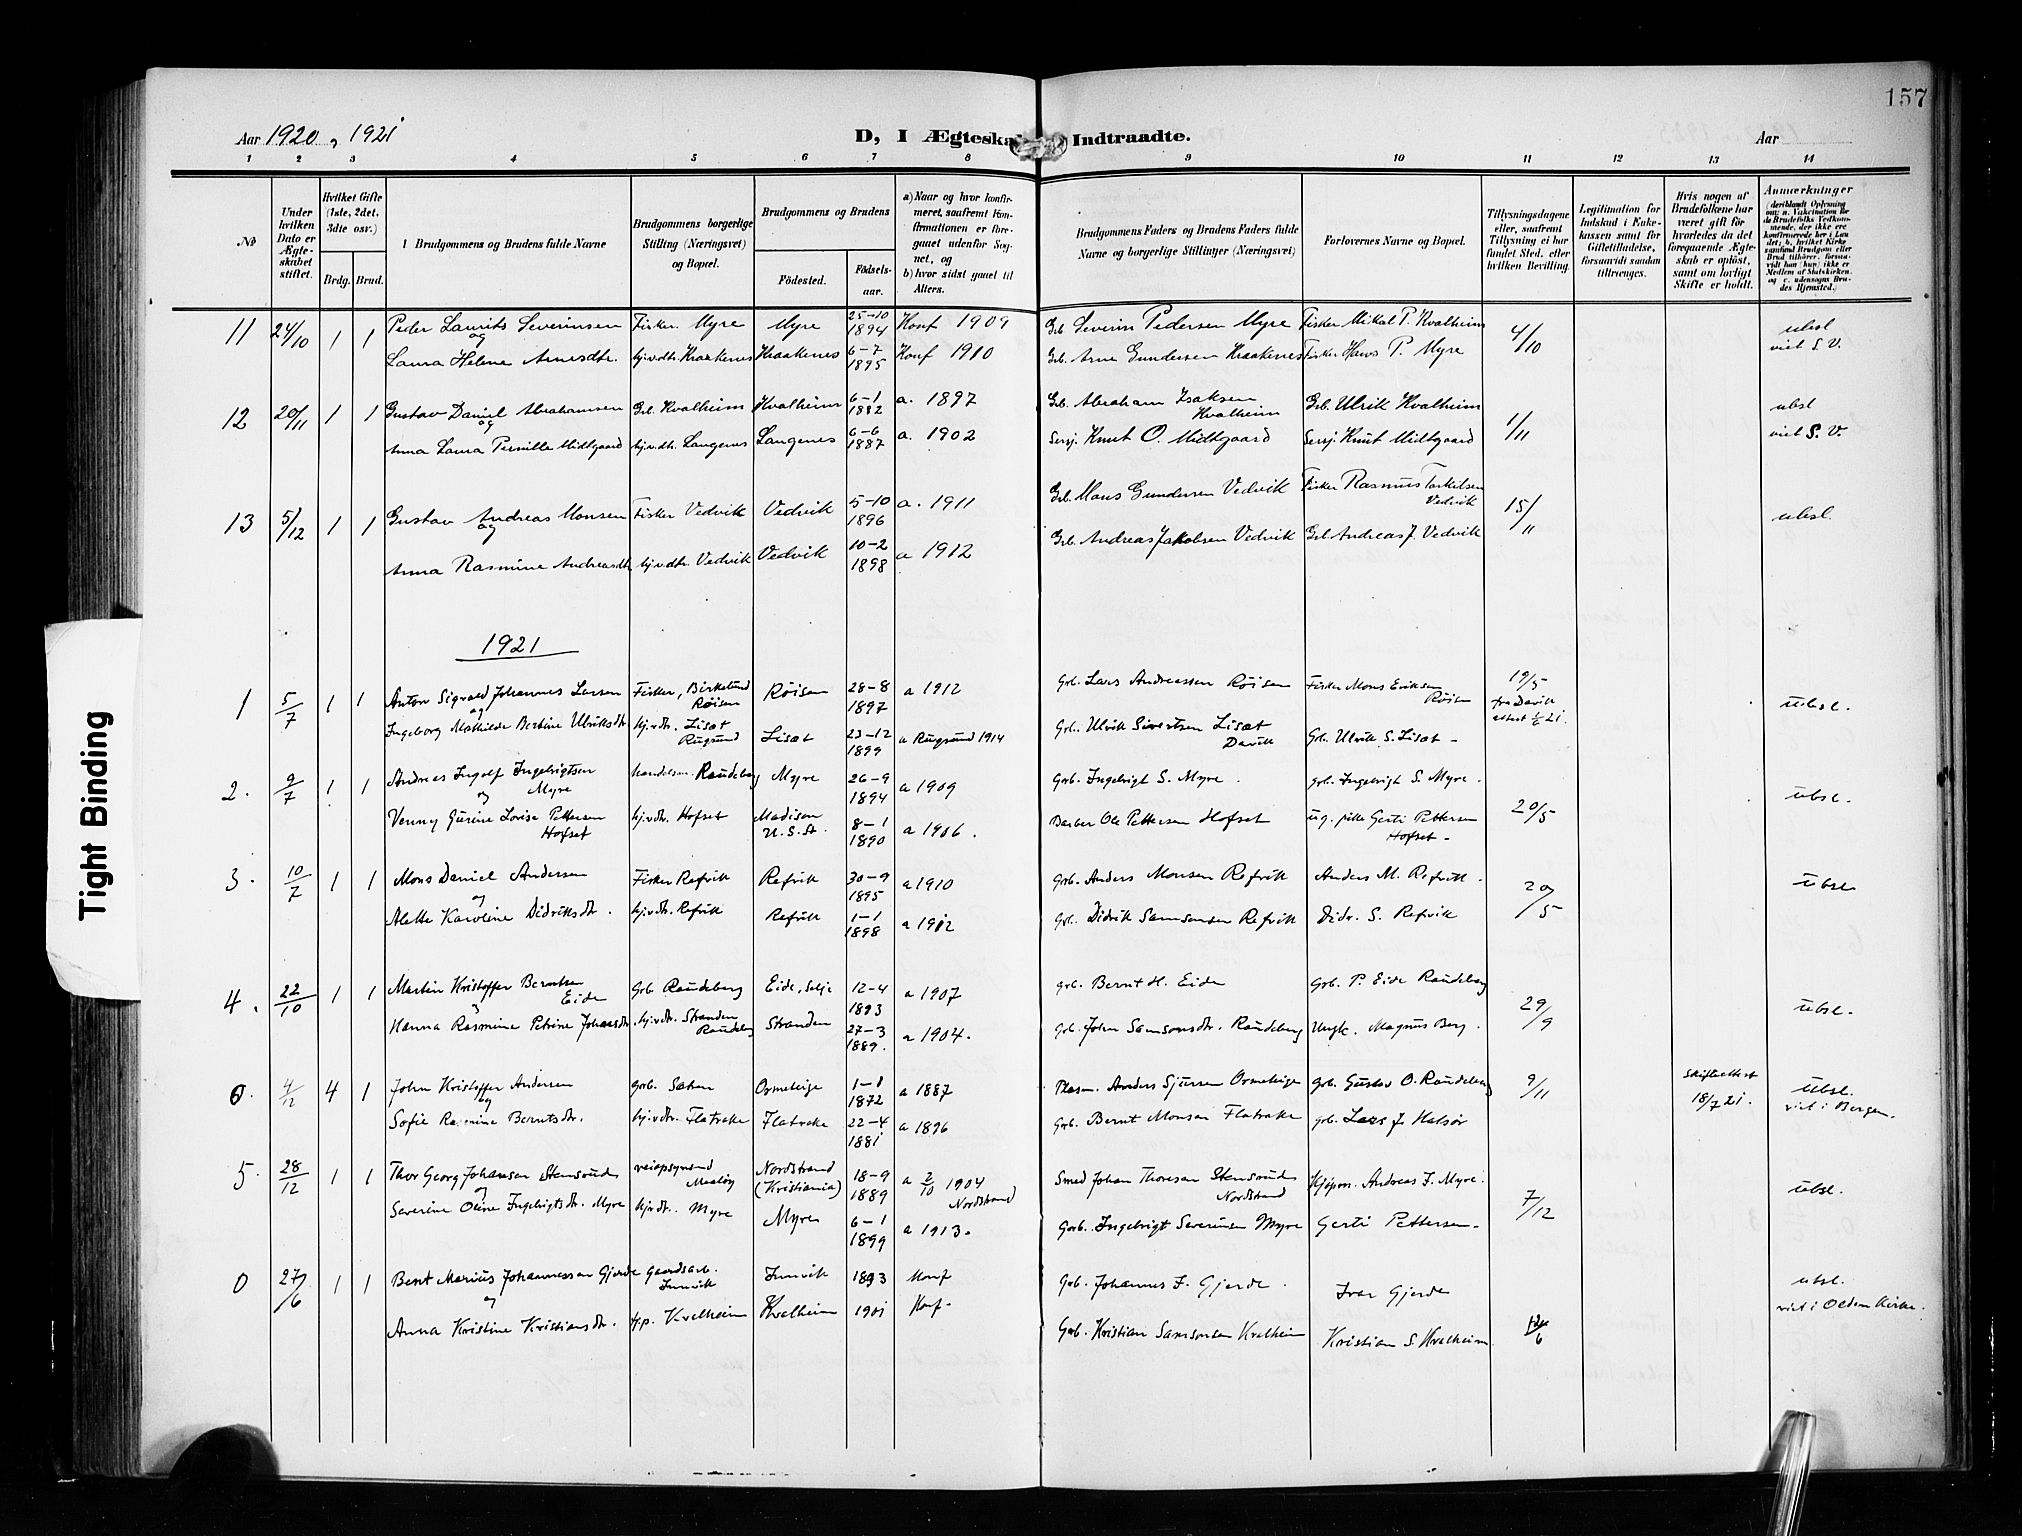 157
Aar 1920 og 1921
D, I Ægteskab Indtraadte.
Aar
1 2 3 4 5 6 7 8 9 10 11 12 13 14
№
Under hvilken Dato er Ægteskabet stiftet.
Hvilket Gifte (1ste, 2det, 3dte osv.)
Brdg. Brud.
Brudgommens og Brudens fulde Navne
Brudgommens borgerlige Stilling (Næringsvei) og Bopæl.
Brudgommens og Brudens
Fødested.
Fødselsaar.
a) Naar og hvor konfirmeret, saafremt Konfirmationen er foregaaet udenfor Sognet, og
b) hvor sidst gaaet til Alters.
Brudgommens Faders og Brudens Faders fulde Navne og borgerlige Stillinger (Næringsvei)
Forlovernes Navne og Bopæl.
Tillysningsdagene eller, saafremt Tillysning ei har fundet Sted, efter hvilken Bevilling.
Legitimation for Indskud i Enkekassen samt for Giftetilladelse, forsaavidt saadan tiltrænges.
Hvis nogen af Brudefolkene har været gift før hvorledes da det foregaaende Ægteskab er opløst, samt om lovligt Skifte er holdt.
Anmærkninger
11 24/10 1 1 Peder Laurits Severinsen Fisker Myre Myre 25-10 1894 Konf 1909 Grb Severin Pedersen Myre Fisker Mikal P. Kvalheim 4/10 ubsl
og
Laura Helene Arnesdtr. hjv.dtr. Kraakenes Kraakenes 6-7 1895 Konf 1910 Grb. Arne Gundersen Kraakenes Fisker Hans P. Myre viet S.V.
12 20/11 1 1 Gustav Daniel Abrahamsen Grb. Kvalheim Kvalheim 6-1 1882 a. 1897 Grb. Abraham Isaksen Kvalheim Grb. Ulrik Kvalheim 1/11 ubsl
og
Anna Laura Pernille Midtgaard hjv.dtr. Langenes Langenes 6-6 1887 a. 1902 Sersj. Knut O. Midtgaard Sersj Knut Midtgaard viet S.V.
13 5/12 1 1 Gustav Andreas Monsen Fisker Vedvik Vedvik 5-10 1896 a. 1911 Grb. Mons Gundersen Vedvik Fisker Rasmus Torkilsen Vedvik 15/11 ubsl.
og
Anna Rasmine Andreasdtr hjv.dtr. Vedvik Vedvik 10-2 1898 a 1912 Grb. Andreas Jakobsen Vedvik Grb Andreas J. Vedvik
1921
1 5/7 1 1 Anton Sigvald Johannes Larsen Fisker, Birkelund Røisen Røisen 28-8 1897 a 1912 Grb. Lars Andreassen Røisen Fisker Mons Eriksen Røisen 19/5 fra Davik attest 1/6 21. ubsl.
og
Ingeborg Mathilde Bertine Ulriksdtr hjv.dtr. Lisæt Rugsund Lisæt 23-12 1899 a Rugsund 1914 Grb. Ulrik Sivertsen Lisæt Davik Grb. Ulrik S. Lisæt-
2. 9/7 1 1 Andreas Ingolf Ingebrigtsen Myre handelsm. Raudeberg Myre 26-9 1894 a 1909 Grb. Ingebrigt S. Myre. grb. Ingebrigt S. Myre. 20/5 ubsl.
og
Venny Gurine Lovise Pettersen Hofset hjv.dtr. Hofset Madison U.S.A. 8-1 1890 a 1906. Barber Ole Pettersen Hofset ug. pike Gerti Pettersen Hofset-
3. 10/7 1 1 Mons Daniel Andersen Fisker Refvik Refvik 30-9 1895 a 1910 Grb. Anders Monsen Refvik Anders M. Refvik. 20/5 ubsl
og
Alette Karoline Didriksdtr. hjv.dtr. Refvik Refvik 1-1 1898 a 1912 Grb. Didrik Samsonsen Refvik Didr. S. Refvik
4. 22/10 1 1 Martin Kristoffer Berntsen Eide Grb Raudeberg Eide, Selje 12-4 1893 a 1907 grb. Bernt H. Eide Grb. P. Eide Raudeberg 29/9 ubsl.
Hanna Rasmine Petrine Johansdtr. hjv.dtr. Stranden Raudeberg Stranden 27-3 1889. a 1904. grb. John Samsonsdtr. Raudeberg Ungk. Magnus Berg.
0. 4/12 4 1 John Kristoffer Andersen grb. Sætren Ormeteige 1-1 1872 a 1887 Plasm. Anders Sjursen Ormeteige grb. Gustav O. Raudeberg 9/11 Skifteattest 18/7 21. Ubsl.
og
Sofie Rasmine Berntsdtr. hjv.dtr. Flatrake Flatrake 22-4 1881 a 1896 Grb. Bernt Monsen Flatrake grb. Lars J. Halsør viet i Bergen.
5. 28/12 1 1 Thor Georg Johansen Stensrud veiopsynsmd Maaløy Nordstrand (Kristiania) 18-9 1889 a 2/10 1904 Nordstrand Smed Johan Thoresen Stensrud Nordstrand Kjøpm. Andreas I. Myre. 7/12 ubsl.
og
Severine Oline Ingebrigtsdtr. Myre hjv.dtr. Myre Myre 6-1 1899 a 1913. Grb. Ingebrigt Severinsen Myre Gerti Pettersen-
0 27/6 1 1 Bent Marius Johannessen Gjerde Gaardsarb. Innvik Innvik 1893 Konf Grb. Johannes I. Gjerde. Ivar Gjerde 12/6 ubsl.
og
Anna Kristine Kristiansdtr. Kvalheim Kvalheim 1901 Konf- Grb. Kristian Samsonsen Kvalheim Kristian S. Kvalheim. viet i Olden Kirke.
Tight Binding